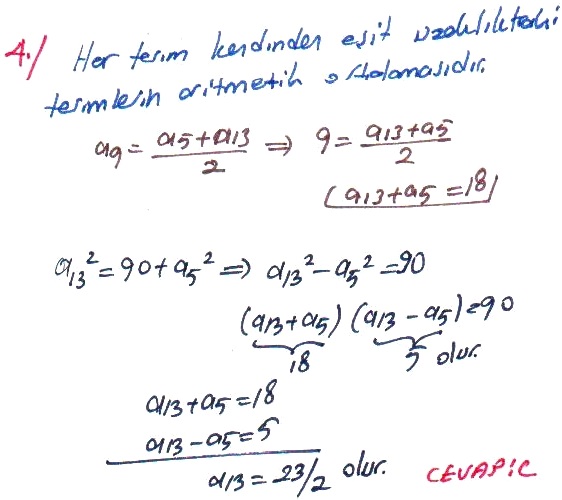 4./ Her terim kendinden eşit uzaklıktaki
terimlerin aritmetik ortalamasıdır.
a9 = a5+a13/2 ⇒ 9 = a13+a5/2
(a13+a5 = 18)
a13² = 90 + a5² ⇒ a13² - a5² = 90
(a13+a5) (a13 - a5) = 90
18 5 olur.
a13+a5 = 18
a13 - a5 = 5
a13 = 23/2 olur. CEVAP: C